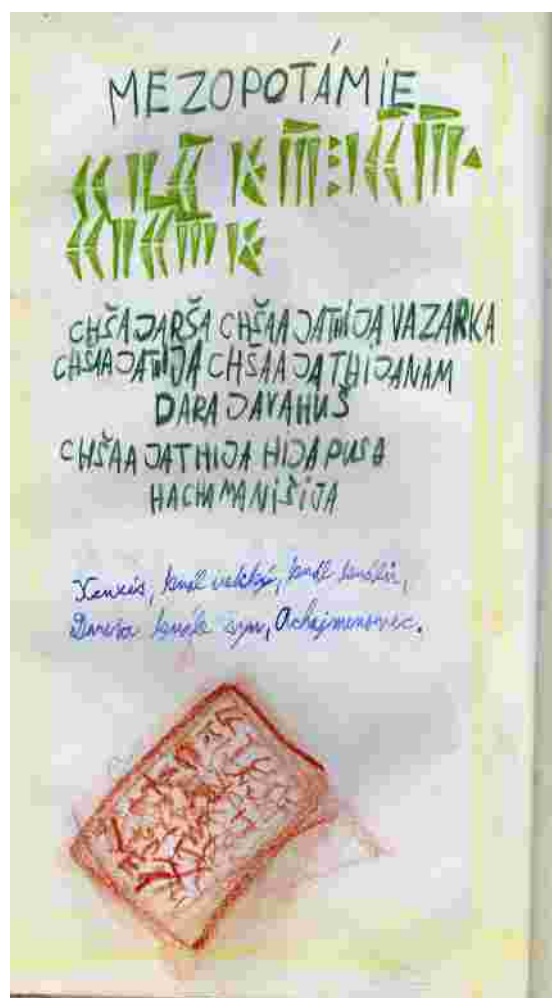 MEZOPOTÁMIE
CHŠAJARŠA CHŠAAJATHIJA VAZARKA
CHŠAAJATHIJA CHŠAAJATHIJANAM
DARAJAVAHUŠ
CHŠAAJATHIJA HIJA PUSA
HACHAMANIŠIJA
Xerxés, král veliký, král králův,
Dareia krále syn, Achajmenovec.